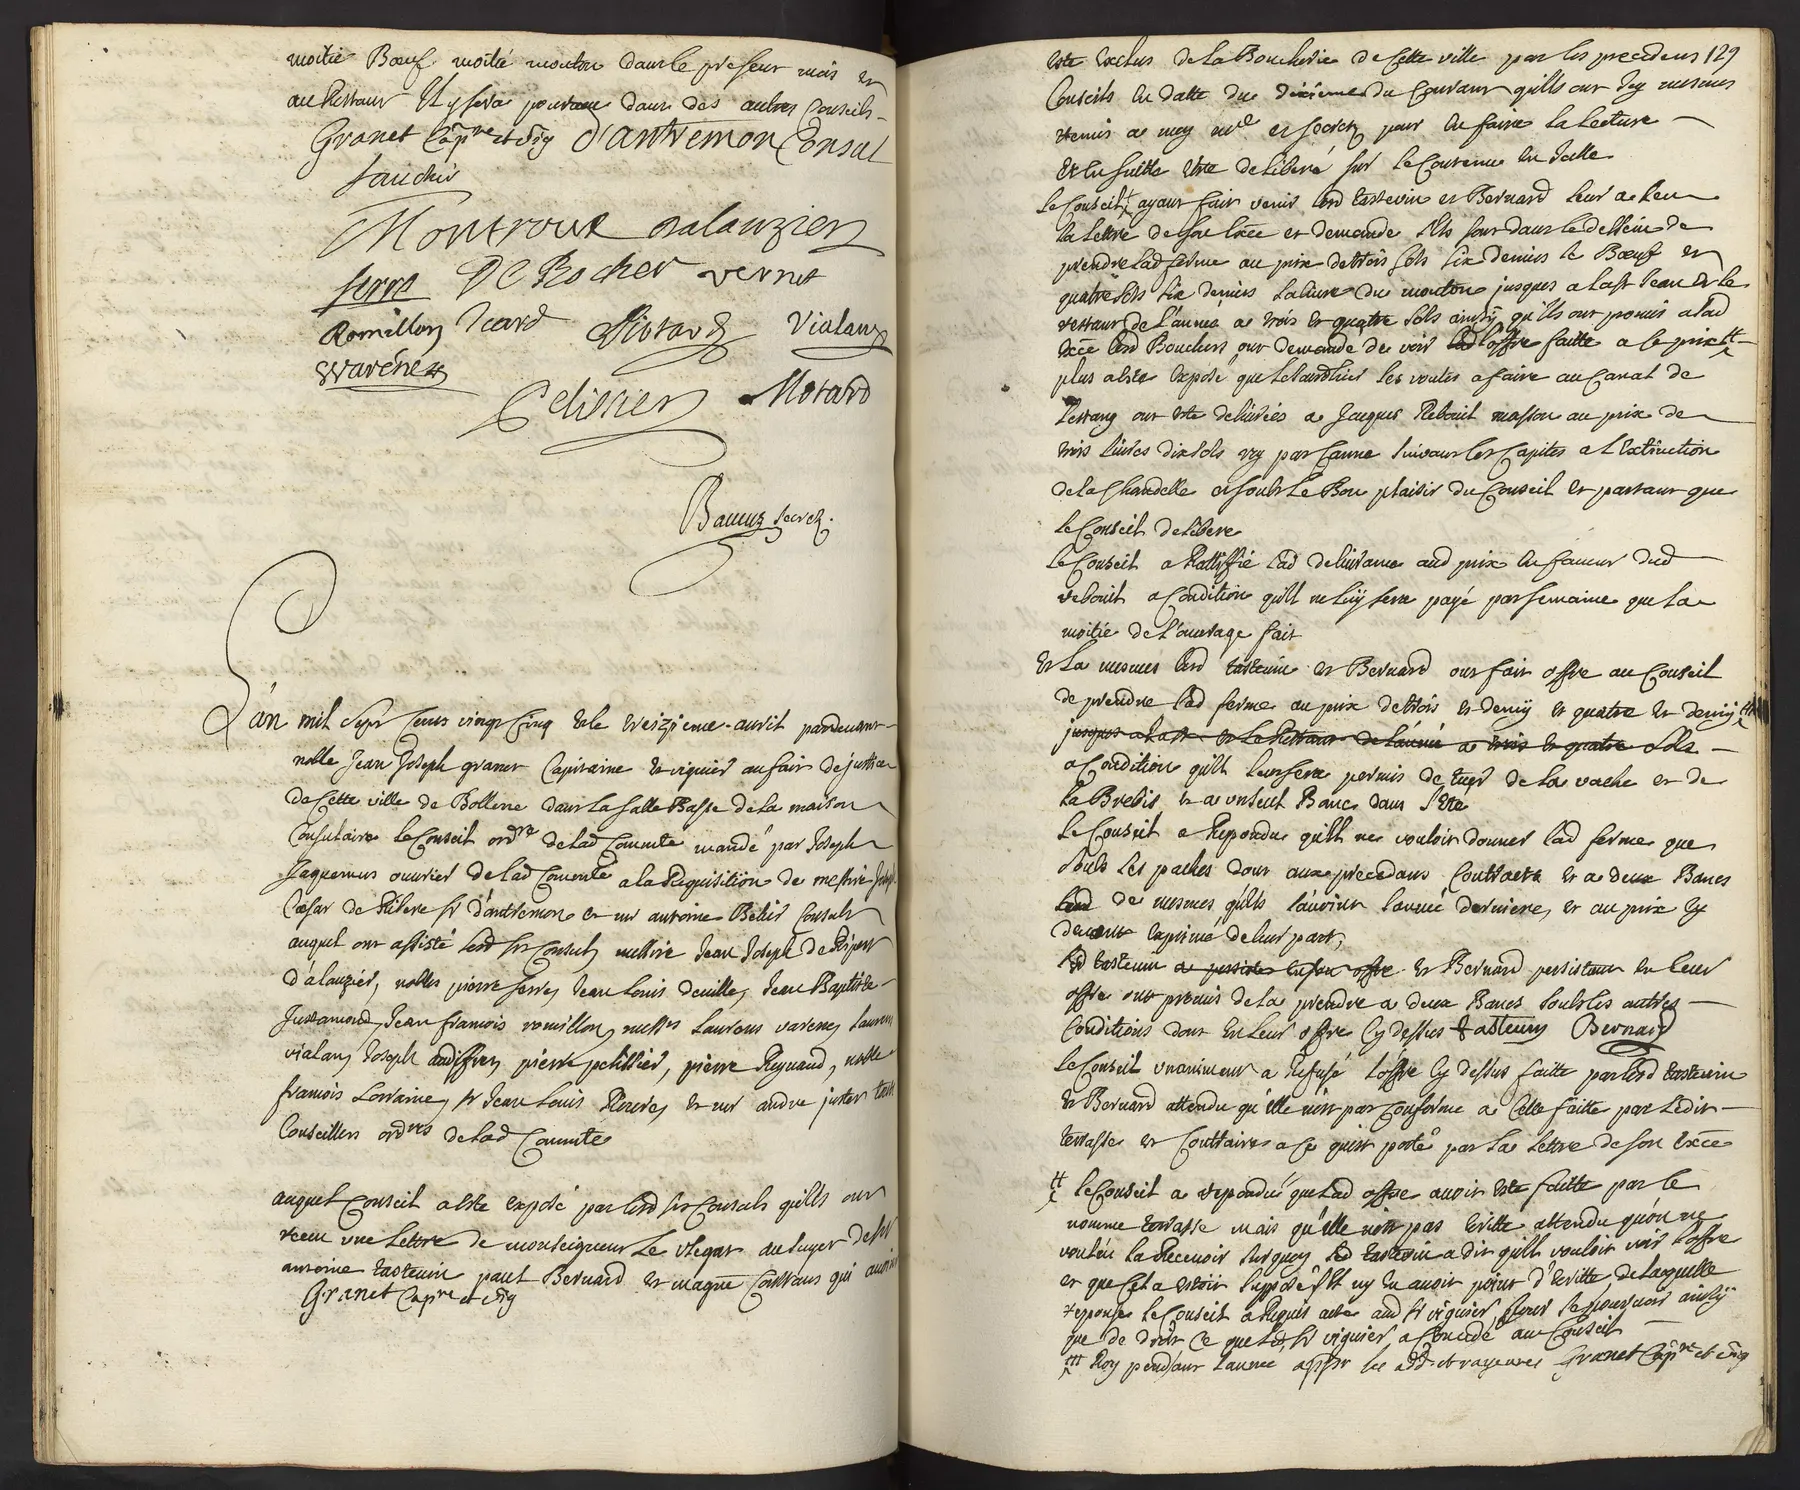 moitié Bœuf moitié mouton dans le present mois et
au restant Il y sera pourveu dans des autres Conseils
Granet Cap.re et vig d'antremon Consul
fauchir
Montroux dalauzier
serre De Rocher vernet
Romillon Icard Morard Vialan
Warenes
Pelissier Morard
Bauux secret.
L'an mil sept cents vingt cinq et le treizieme avril pardevant
noble Jean Joseph granet Capitaine et viguier au fait de justice
de Cette ville de Bollene dans la salle Basse de la maison
Consulaire le Conseil ord.re de lad Comm.te mandé par Joseph
Jaquemus ouvrier de lad Comm.te a la Requisition de messire
Cæsar de Ribere sr d'antremon et mr antoine Consuls
auquel ont assisté lesd srs Consuls messire Jean Joseph de Ripert
d'alauzier, nobles pierre serre, Jean Louis deville, Jean Baptiste
Justamond, Jean francois romillon, mess.rs Laurens varene, Laurens
vialan, Joseph audiffren, pierre pelissier, pierre Reynaud, noble
francois Lorraine, sr Jean Louis et mr andre
Conseillers ord.res de lad Comm.te
auquel Conseil a esté exposé par lesd srs Consuls qu'ils ont
receu une lettre de monseigneur le vlegat au sujet de sr
antoine tastevin paul Bernard et Contrans qui avoint
Granet Cap.re et vig
129
esté exclus de la Boucherie de Cette ville par les precedens
Conseils en datte du dixieme du Courant qu'ils ont mesmes
remis a moy et secret pour en faire la lecture
Et en suitte estre deliberé sur le Contenu en Icelle
le Conseil ayant fait venir lesd tastevin et Bernard leur a leu
la lettre de son Exce et demande s'ils sont dans le dessein de
prendre lad ferme au prix de trois sols six deniers le Bœuf et
quatre sols six deniers la livre du mouton jusques a la st Jean et le
restant de l'année a trois et quatre sols ainsy qu'ils ont promis a sad
Exce lesd Bouchers ont demande de voir l'offre faitte a ce prix
plus a esté exposé que les voutes a faire au Canal de
l'estang ont esté delivrées a Jacques Reboul masson au prix de
trois livres dix sols par Canne suivant les Capites a l'extinction
de la Chandelle et soubs le Bon plaisir du Conseil et partant que
le Conseil delibere
le Conseil a Rattiffié lad delivrance aud prix en faveur dud
reboul a Condition qu'il ne luy sera payé par semaine que la
moitié de l'ouvrage fait
Et la mesmes lesd tastevin et Bernard ont fait offre au Conseil
de prendre lad ferme au prix de trois et demy et quatre et demy
jusques a la st et le Restant de l'année a trois et quatre sols
a Condition qu'il leur sera permis de tuer de la vache et de
la Brebis et a un seul Banc dans l'Esté
le Conseil a Repondu qu'il ne vouloit donner lad ferme que
soubs les paches dont aux precedans Contracts et a deux Bancs
de mesmes qu'ils l'avoint l'année derniere, et au prix
exprimé de leur part,
led tastevin a persisté en son offre et Bernard persistant en leur
offre ont promis de la prendre a deux Bancs soubs les autres
Conditions dont en leur offre Cy dessus tastevin Bernard
le Conseil unanimement a Refusé l'offre Cy dessus faitte par lesd tastevin
et Bernard attendu qu'elle n'est pas Conforme a Celle faitte par ledit
terrasse et Contraire a ce qui est porté par la lettre de son Exce
le Conseil a repondu que lad offre avoit esté faitte par le
nomme terrasse mais qu'elle n'est pas écritte attendu qu'on ne
voulut la Recevoir surquoy led tastevin a dit qu'il vouloit voir l'offre
et que Cela estoit supposé s'il ny en avoit point d'écritte, de laquelle
reponse le Conseil a Requis acte aud sr viguier, pour se pourvoir ainsy
que de droit ce que led sr viguier a Concedé au Conseil
pendant l'année Granet Cap.re et vig